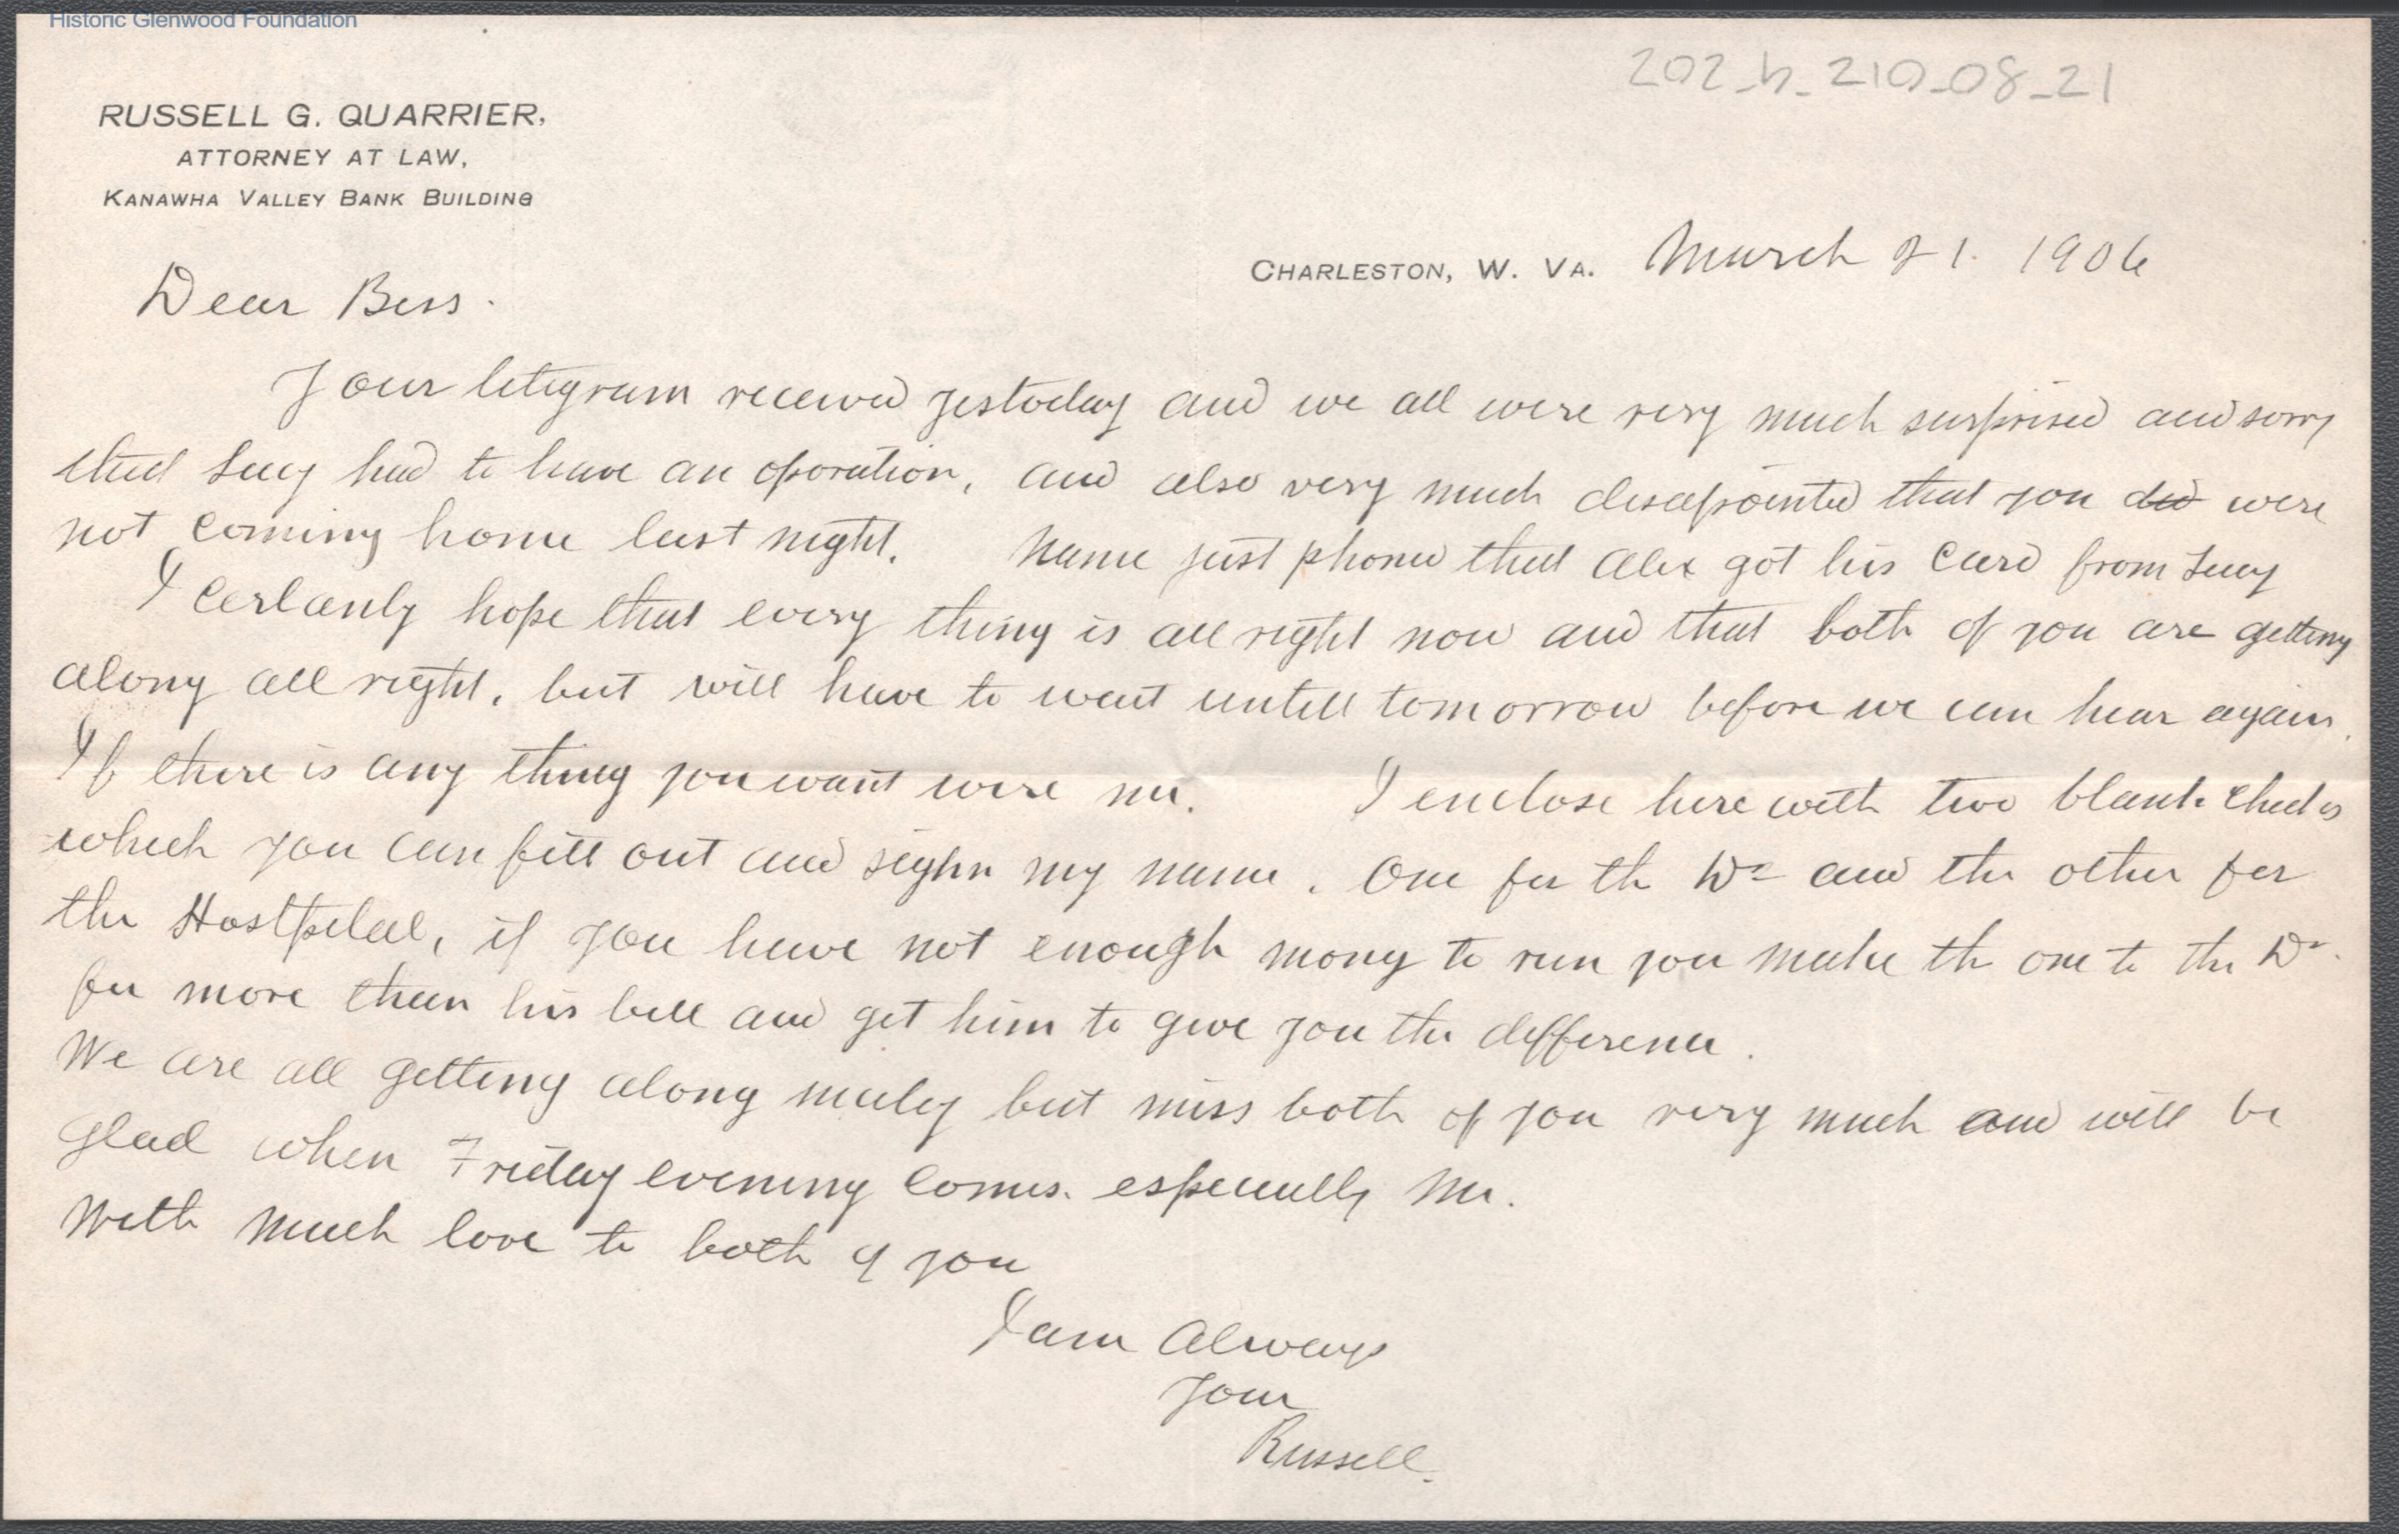 Historic Glenwood Foundation
202_b_210_08_21
RUSSELL G. QUARRIER,
ATTORNEY AT LAW,
KANAWHA VALLEY BANK BUILDING
CHARLESTON, W. VA. March 21. 1906
Dear Bess.
Your letegram received yestoday and we all were very much surprised and sorry
that Lucy had to have an oporation, and also very much disapointed that you did were
not coming home last night. just phoned that Alex got his card from Lucy
I certanly hope that every thing is all right now and that both of you are getting
along all right, but will have to wait untill tomorrow before we can hear again.
If there is any thing you want wire me. I enclose here with two blank checks
which you can fill out and sighn my name. One for the Dr and the other for
the Hostpital, if you have not enough mony to run you make the one to the Dr.
for more than his bill and get him to give you the difference.
We are all getting along nicely but miss both of you very much and will be
glad when Friday evening comes. especially me.
With much love to both of you
I am Always
Your
Russell.